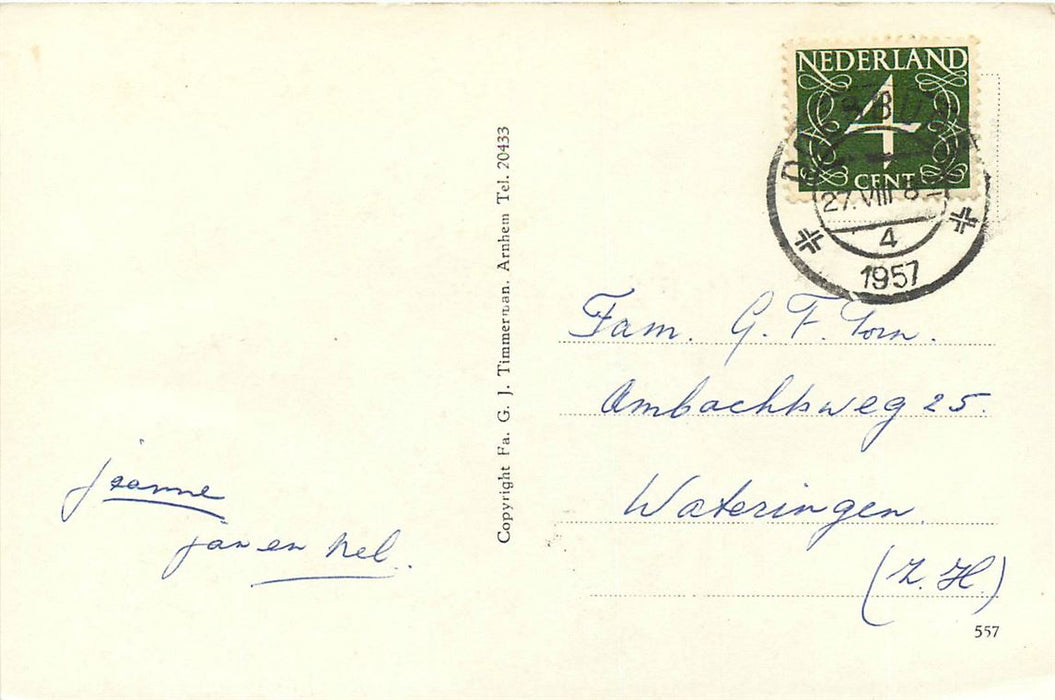 NEDERLAND
4
CENT
27.VIII 8
4
1957
Copyright Fa. G. J. Timmerman. Arnhem Tel. 20433
Fam. G. F. Torn.
Ambachtsweg 25.
Wateringen.
(Z. H.)
Jeanne
Jan en Nel.
557